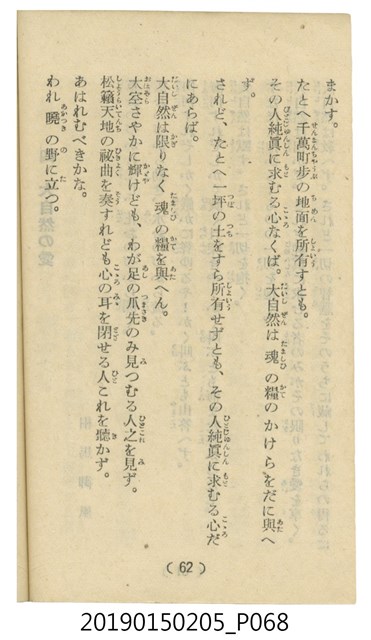 まかす。
たとへ千萬町歩の地面を所有すとも。
その人純眞に求むる心なくば。大自然は 魂 の糧のかけらをだに與へ
ず。
されど、たとへ一坪の土をすら所有せずとも、その人純眞に求むる心だ
にあらば。
大自然は限りなく 魂 の糧を與へん。
大空さやかに輝けども、わが足の爪先のみ見つむる人之を見ず。
松籟天地の祕曲を奏すれども心の耳を閉せる人これを聽かず。
あはれむべきかな。
われ 曉 の野に立つ。
( 62 )
20190150205_P068